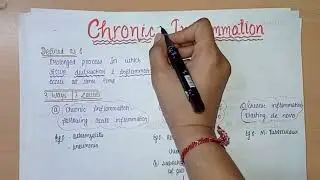 Chronic Inflammation
Defined as :
Prolonged process in which
tissue destruction & inflammation
occurs at same time
3 Ways
① Chronic Inflammation
following acute inflammation
Eg:- Osteomyelitis
pneumonia
③ Chronic inflammation
starting de novo
Eg:- M. Tuberculosis